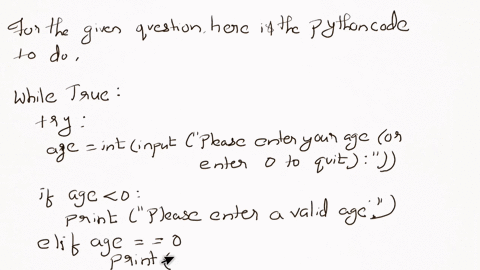 For the given question, here is the python code
to do,
while True:
try:
age = int(input ("Please enter your age (or
enter 0 to quit):"))
if age < 0:
print ("Please enter a valid age.")
elif age == 0
print(